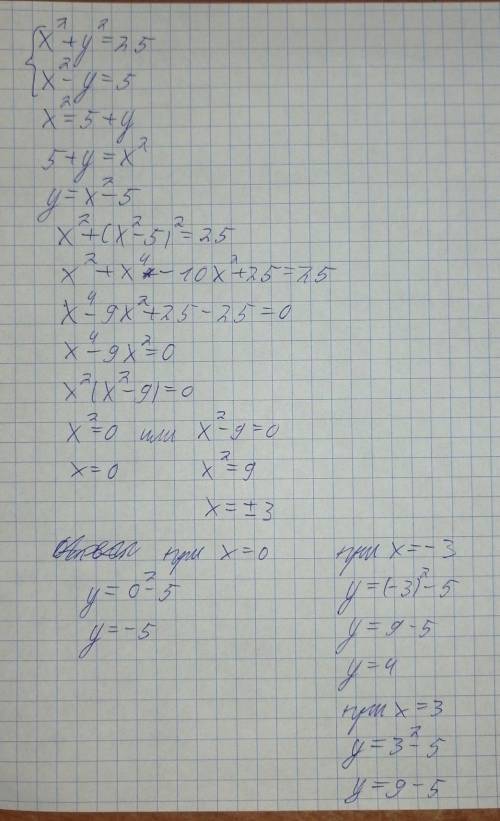 x²+y²=25
x²-y=5
x²=5+y
5+y=x²
y=x²-5
x²+(x²-5)²=25
x²+x⁴-10x²+25=25
x⁴-9x²+25-25=0
x⁴-9x²=0
x²(x²-9)=0
x²=0 или x²-9=0
x=0 x²=9
x=±3
при x=0
y=0²-5
y=-5
при x=-3
y=(-3)²-5
y=9-5
y=4
при x=3
y=3²-5
y=9-5